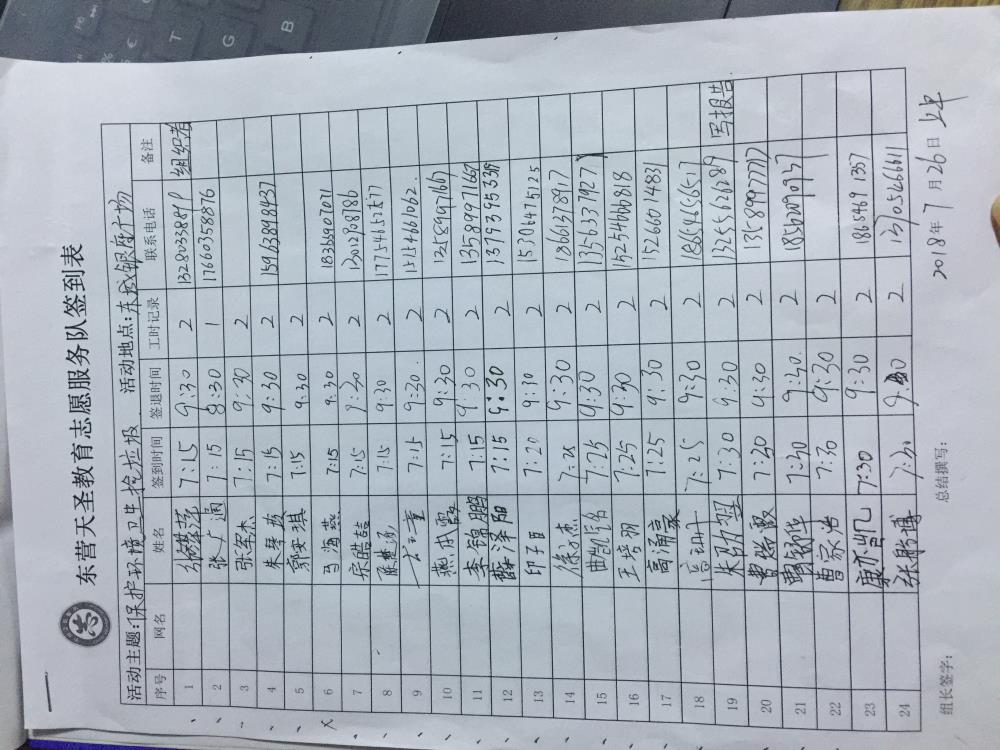 东营天圣教育志愿服务队签到表
活动主题:保护环境卫生捡垃圾 活动地点:东城银座广场
序号 网名 姓名 签到时间 签退时间 工时记录 联系电话 备注
1 7:15 9:30 2 组织者
2 7:15 8:30 1 17660358876
3 张玺杰 7:15 9:30 2
4 朱琴英 7:15 9:30 2 15963898437
5 郭安琪 7:15 9:30 2
6 马海燕 7:15 9:30 2 18366907071
7 宗皓吉 7:15 9:30 2 13012908786
8 7:15 9:30 2 17754652577
9 7:15 9:30. 2 15154661062.
10 7:15 9:30 2 13589971667
11 李锦鹏 7:15 9:30 2 13589971667
12 薛泽阳 7:15 9:30 2 13793795339
13 印子臣 7:20 9:30 2 15306475125
14 徐杰 7:25 9:30 2 18661378917
15 曲凯名 7:25 9:30 2 13563379271
16 王培羽 7:25 9:30 2 15254666818
17 高涌家 7:25 9:30 2 15266014831
18 高珊 7:25 9:30 2 18654656571
19 7:30 9:30 2 13255626289 写报告
20 7:30 9:30 2 13589977717
21 7:30 9:30. 2 18562097937
22 曹家冶 7:30 9:30 2
23 康永凯 7:30 9:30 2 18654691357
24 张鹏博 7:30 9:30 2 13705466611
组长签字: 总结撰写: 2018年7月26日 上午